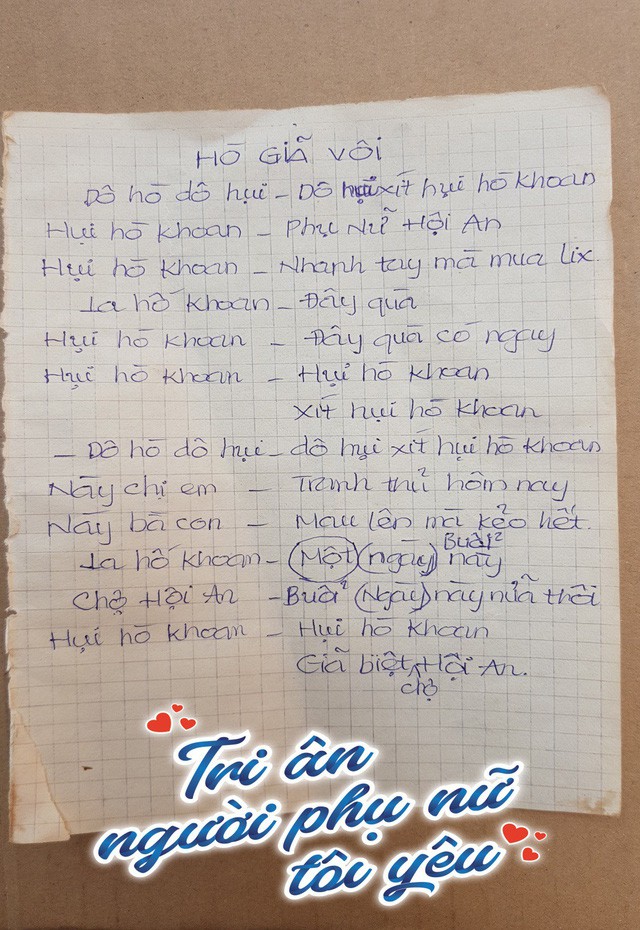 HÒ GIÃ VÔI
Dô hò dô hụi - Dô xít hụi hò khoan
Hụi hò khoan - Phụ Nữ Hội An
Hụi hò khoan - Nhanh tay mà mua lix.
La hố khoan - Đây quà
Hụi hò khoan - Đây quà có ngay
Hụi hò khoan - Hụi hò khoan
xít hụi hò khoan
- Dô hò dô hụi - dô hụi xít hụi hò khoan
Này chị em - Tranh thủ hôm nay
Này bà con - Mau lên mà kẻo hết.
La hố khoan - (Một) (ngày) Buổi này
Chợ Hội An - Buổi (Ngày) này nữa thôi
Hụi hò khoan - Hụi hò khoan
Giã biệt chợ Hội An.
Tri ân
người phụ nữ
tôi yêu